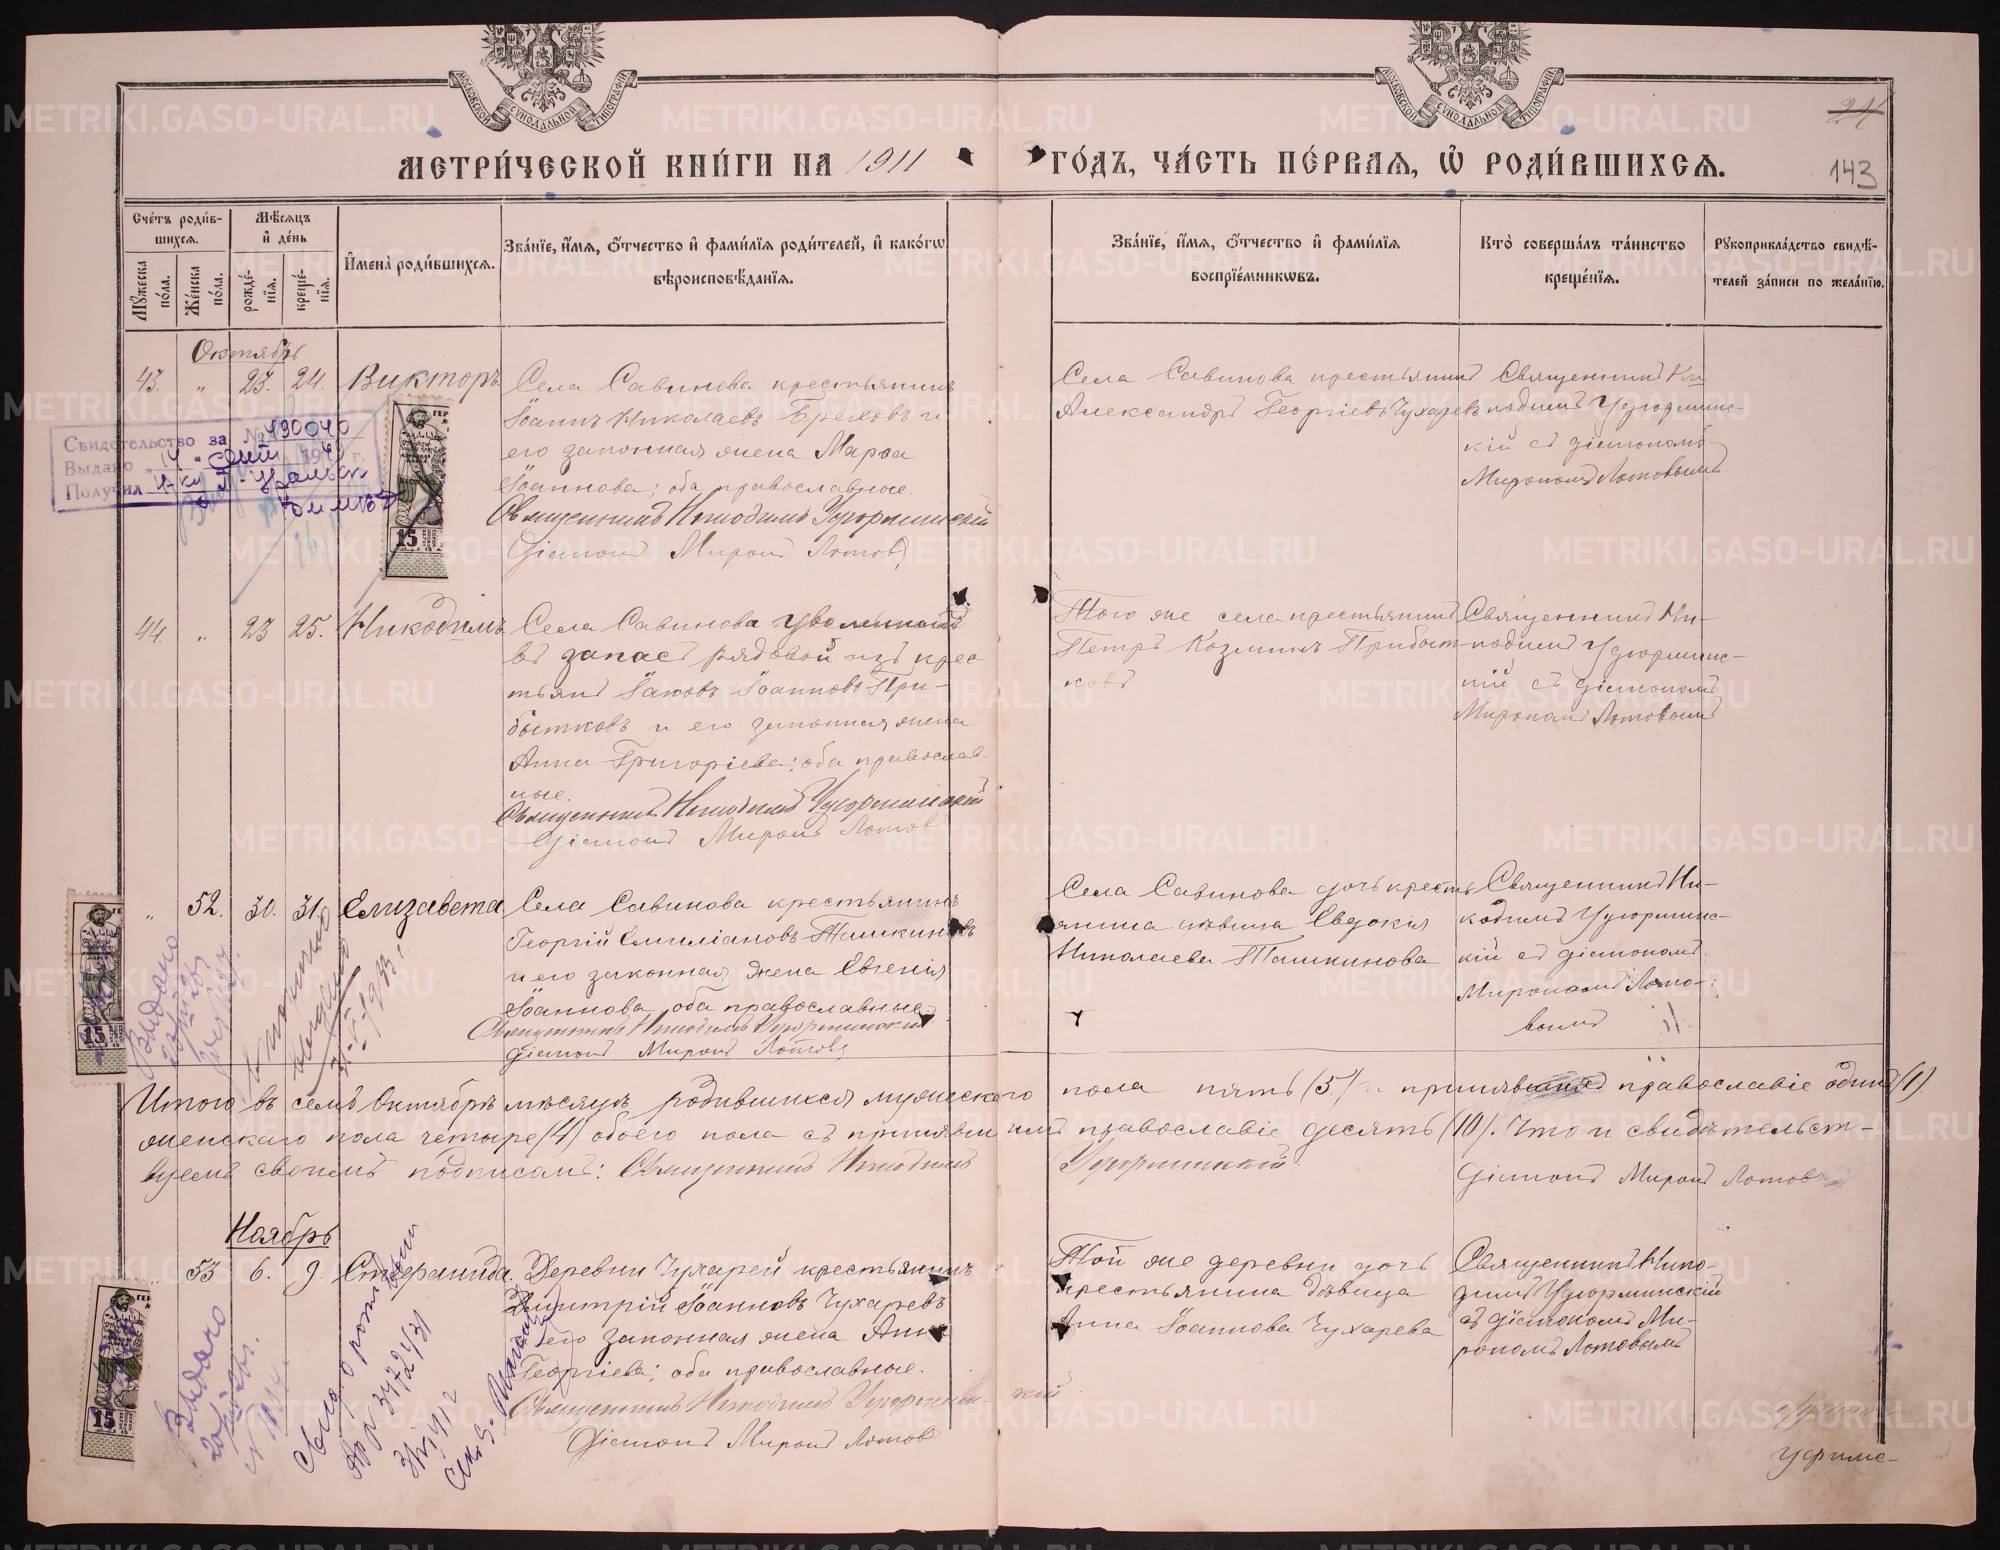 МОСКОВСКОЙ СѴНОДАЛЬНОЙ ТИПОГРАФІИ
МОСКОВСКОЙ СѴНОДАЛЬНОЙ ТИПОГРАФІИ
24
МЕТРИ́ЧЕСКОЙ КНИ́ГИ НА 1911 ГО́ДЪ, ЧА́СТЬ ПЕ́РВАЯ, Ѡ҆ РОДИ́ВШИХСЯ.
143
Сче́тъ роди́в-
шихся.
Мꙋ́жеска
по́ла.
Же́нска
по́ла.
Мѣ́сяцъ
и҆ де́нь
рожде́-
нїя.
креще́-
нїя.
И҆мена̀ роди́вшихся.
Зва́нїе, и҆́мя, ѻ҆́тчество и҆ фами́лїя роди́телей, и҆ како́гѡ
вѣроисповѣ́данїя.
Зва́нїе, и҆́мя, ѻ҆́тчество и҆ фами́лїя
воспрїе́мникѡвъ.
Кто̀ соверша́лъ та́инство
креще́нїя.
Рꙋкоприкла́дство свидѣ́-
телей за́писи по жела́нїю.
Октябрь
43. „ 23. 24. Викторъ
Села Савинова крестьянинъ
Іоаннъ Николаевъ Бреховъ и
его законная жена Марѳа
Іоаннова; оба православные.
Священникъ Никодимъ Удюрминскій
Діаконъ Миронъ Лотовъ
Села Савинова крестьянинъ
Александръ Георгіевъ Чухаревъ
Священникъ Ни-
кодимъ Удюрминс-
кій съ діакономъ
Мирономъ Лотовымъ
Свидетельство за № 490040
Выдано
Получил
15
44. „ 23 25. Никодимъ
Села Савинова уволенный
въ запасъ рядовой изъ крес-
тьянъ Іаковъ Іоанновъ При-
бытковъ и его законная жена
Анна Григоріева; оба православ-
ные.
Священникъ Никодимъ Удюрминскій
Діаконъ Миронъ Лотовъ
Того же села крестьянинъ
Петръ Козминъ Прибыт-
ковъ
Священникъ Ни-
кодимъ Удюрминс-
кій съ діакономъ
Мирономъ Лотовымъ
„ 52. 30. 31. Елизавета
Села Савинова крестьянинъ
Георгій Емиліановъ Ташкиновъ
и его законная жена Евгенія
Іоаннова, оба православные.
Священникъ Никодимъ Удюрминскій
діаконъ Миронъ Лотовъ
Села Савинова дочь кресть-
янина дѣвица Евдокія
Николаева Ташкинова
Священникъ Ни-
кодимъ Удюрминс-
кій съ діакономъ
Мирономъ Лото-
вымъ
15
Выдано
Итого въ семъ Октябрѣ мѣсяцѣ родившихся мужескаго пола пять (5) и принявш православіе одинъ (1)
женскаго пола четыре (4) обоего пола съ принявшимъ православіе десять (10). Что и свидѣтельст-
вуемъ своимъ подписомъ: Священникъ Никодимъ Удюрминскій.
Діаконъ Миронъ Лотовъ
Ноябрь
„ 53 6. 9. Стефанида.
Деревни Чухарей крестьянинъ
Дмитрій Іоанновъ Чухаревъ
и его законная жена Анна
Георгіева; оба православные.
Священникъ Никодимъ Удюрминскій
Діаконъ Миронъ Лотовъ
Той же деревни дочь
крестьянина дѣвица
Анна Іоаннова Чухарева
Священникъ Нико-
димъ Удюрминскій
съ діакономъ Ми-
рономъ Лотовымъ
15
Выдано
METRIKI.GASO-URAL.RU